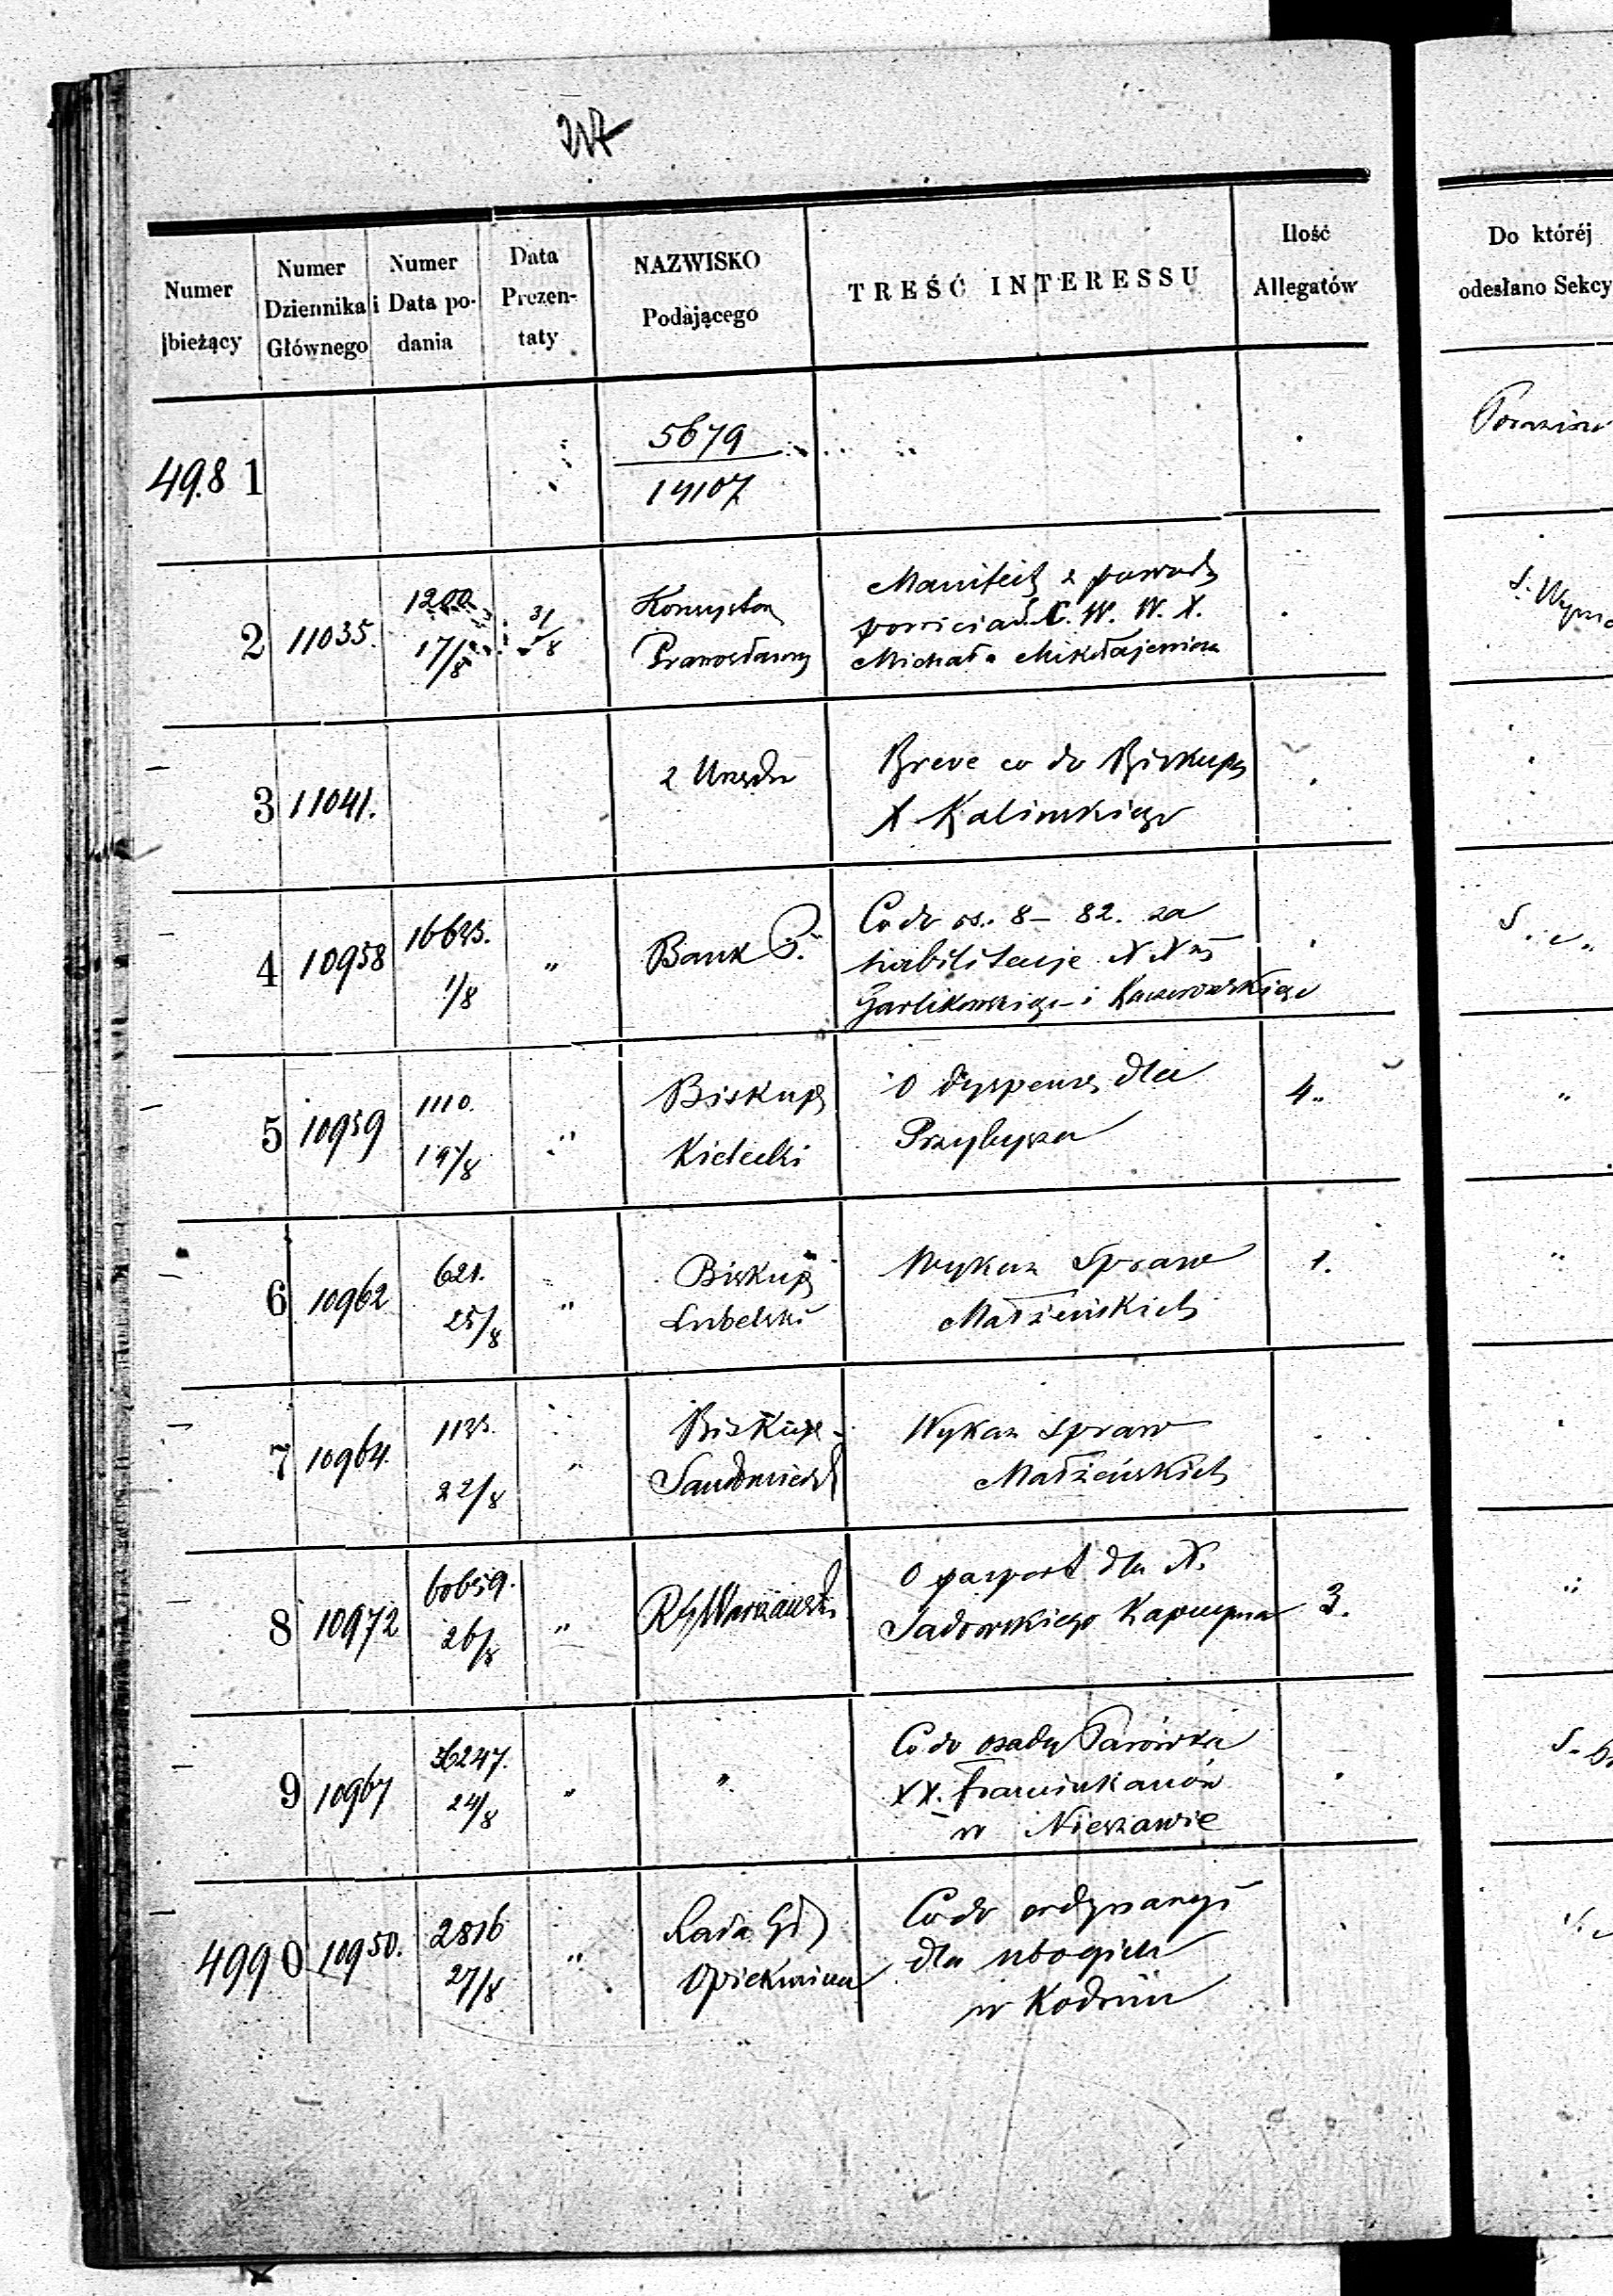 Numer bieżący
Numer Dziennika Głównego
Numer i Data podania
Data Prezentaty
NAZWISKO Podającego
TREŚĆ INTERESSU
Ilość Allegatów
Do któréj
odesłano Sekcy
498 1
5679
14107
2 11035. 1200 17/8 31/8
Konsystorz
Prawosławny
Manifest z powodu
J. C. W. W. X.
Michała Mikołajewicza
3 11041.
z Urzędu
Breve co do Biskupa
X Kalinskiego
4 10958 1/8 „
Bank P.
Co do rs. 8 – 82. za
habilitacje
Garlikowskiego i
5 10959 1110. 19/8 „
Biskup
Kielecki
O dyspensę dla
Przybysza
4.. „
6 10962 621. 25/8 „
Biskup
Lubelski
Wykaz Spraw
Małżeńskich
1. „
7 10964. 22/8 „
Biskup
Wykaz spraw
Małżeńskich
8 10972 60659. 26/8 „
RG Warszawski
O paszport dla X.
Sadowskiego Kapucyna
3. „
9 10967 36247. 24/8 „
„
Co do osady
XX. Franciszkanów
w Nieszawie
499 0 10950. 2816 27/8 „
Rada Gł
Opiekuńcza
Co do ordynaryi
dla ubogich
w Kodniu